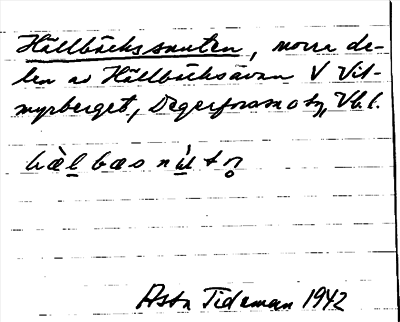 Hällbäckssnuten, norra de-
len av Hällbäcksavan V Vit-
myrberget, Degerfors sn, Vb l.
Asta Tideman 1942